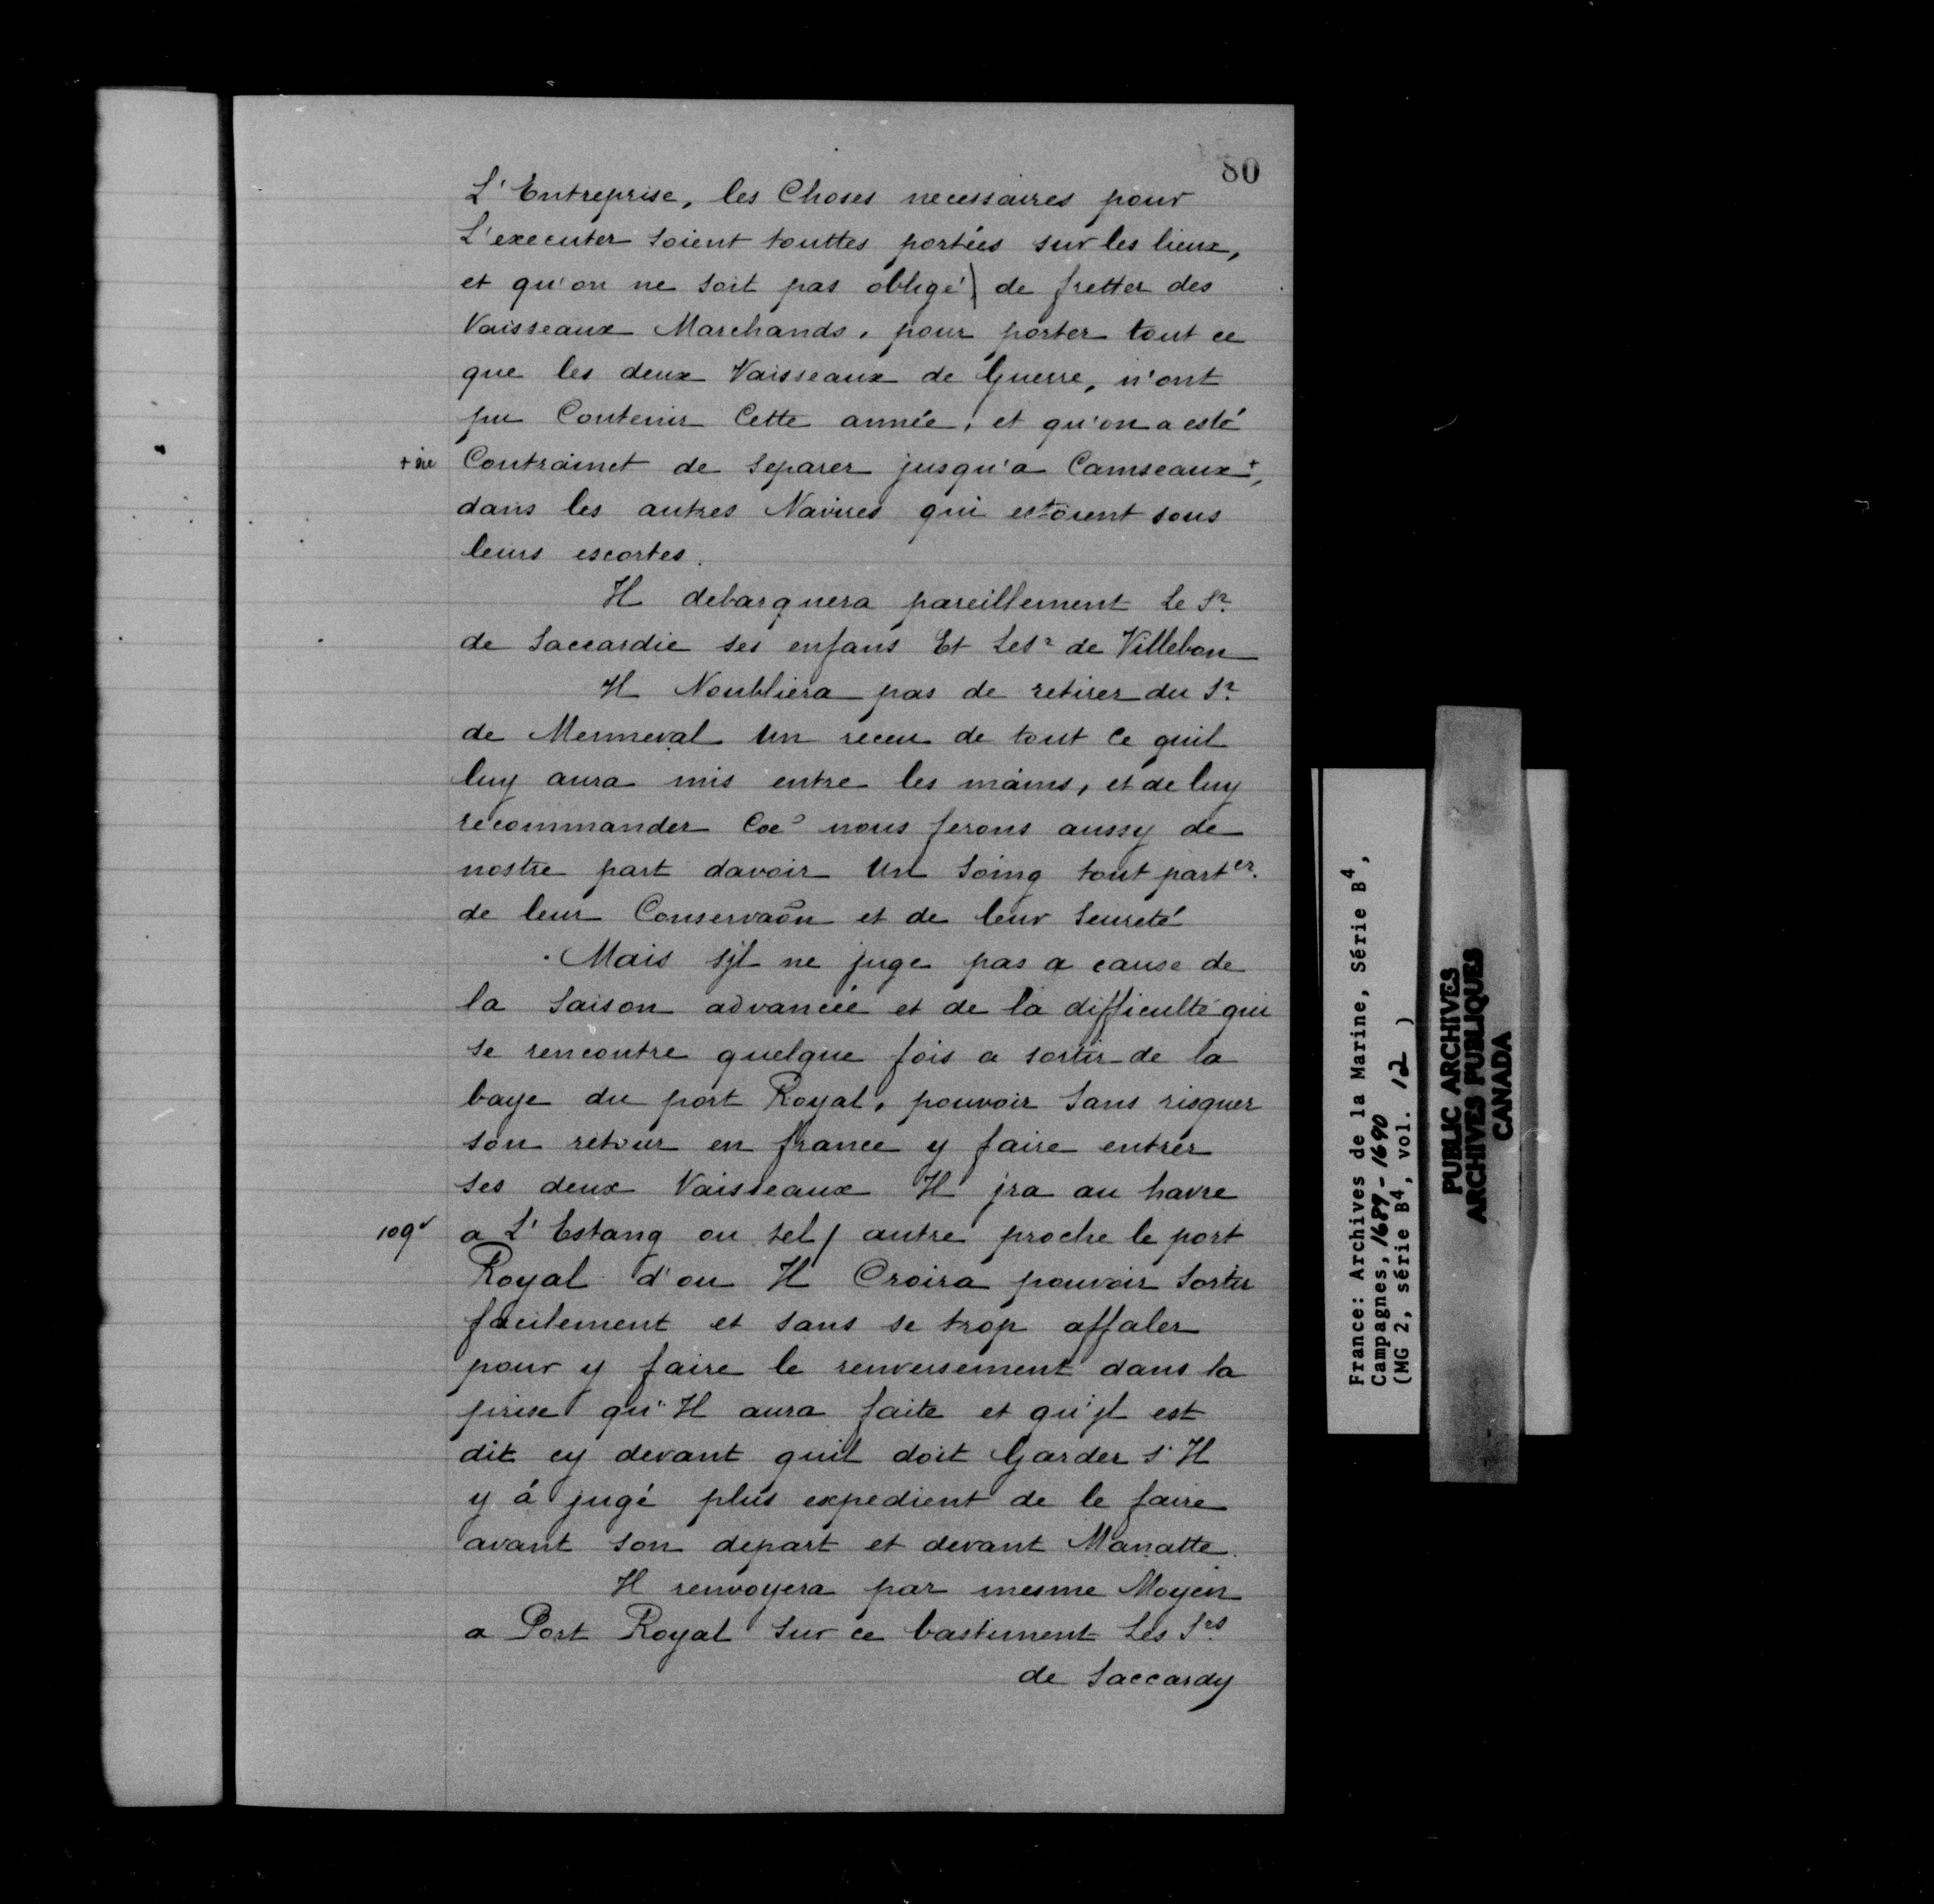 80
L'Entreprise, les Choses necessaires pour
L'executer soient touttes portées sur les lieux,
et qu'on ne soit pas obligé \ de fretter des
Vaisseaux Marchands, pour porter tout ce
que les deux Vaisseaux de Guerre, n'ont
pu Contenir Cette année, et qu'on a esté
+ sic Contrainct de separer jusqu'a Camseaux +,
dans les autres Navires qui estoient sous
leurs escortes.
Il debarquera pareillement Le Sr
de Saccardie ses enfans Et Le Sr de Villebon
Il Noubliera pas de retirer du Sr
de Menneval Un receu de tout Ce quil
luy aura mis entre les mains, et de luy
recommander Coe nous ferons aussy de
nostre part davoir Un Soing tout parter.
de leur Conservaōn et de leur Seureté
Mais sjl ne juge pas a cause de
la Saison advancée et de la difficulté qui
se rencontre quelque fois a sortir de la
baye du port Royal, pouvoir Sans risquer
son retour en france y faire entrer
ses deux Vaisseaux Il jra au havre
109v a L'Estang ou tel / autre proche le port
Royal d'ou Il Croira pouvoir Sortir
facilement et sans se trop affaler
pour y faire le renversement dans la
prise qu'Il aura faite et qu'jl est
dit cy devant quil doit Garder s'Il
y á jugé plus expedient de le faire
avant son depart et devant Manatte.
Il renvoyera par mesme Moyen
a Port Royal Sur ce bastiment Les Srs
de Saccardy
France: Archives de la Marine, Série B4,
Campagnes, 1689-1690
(MG 2, série B4, vol. 12 )
PUBLIC ARCHIVES
ARCHIVES PUBLIQUES
CANADA